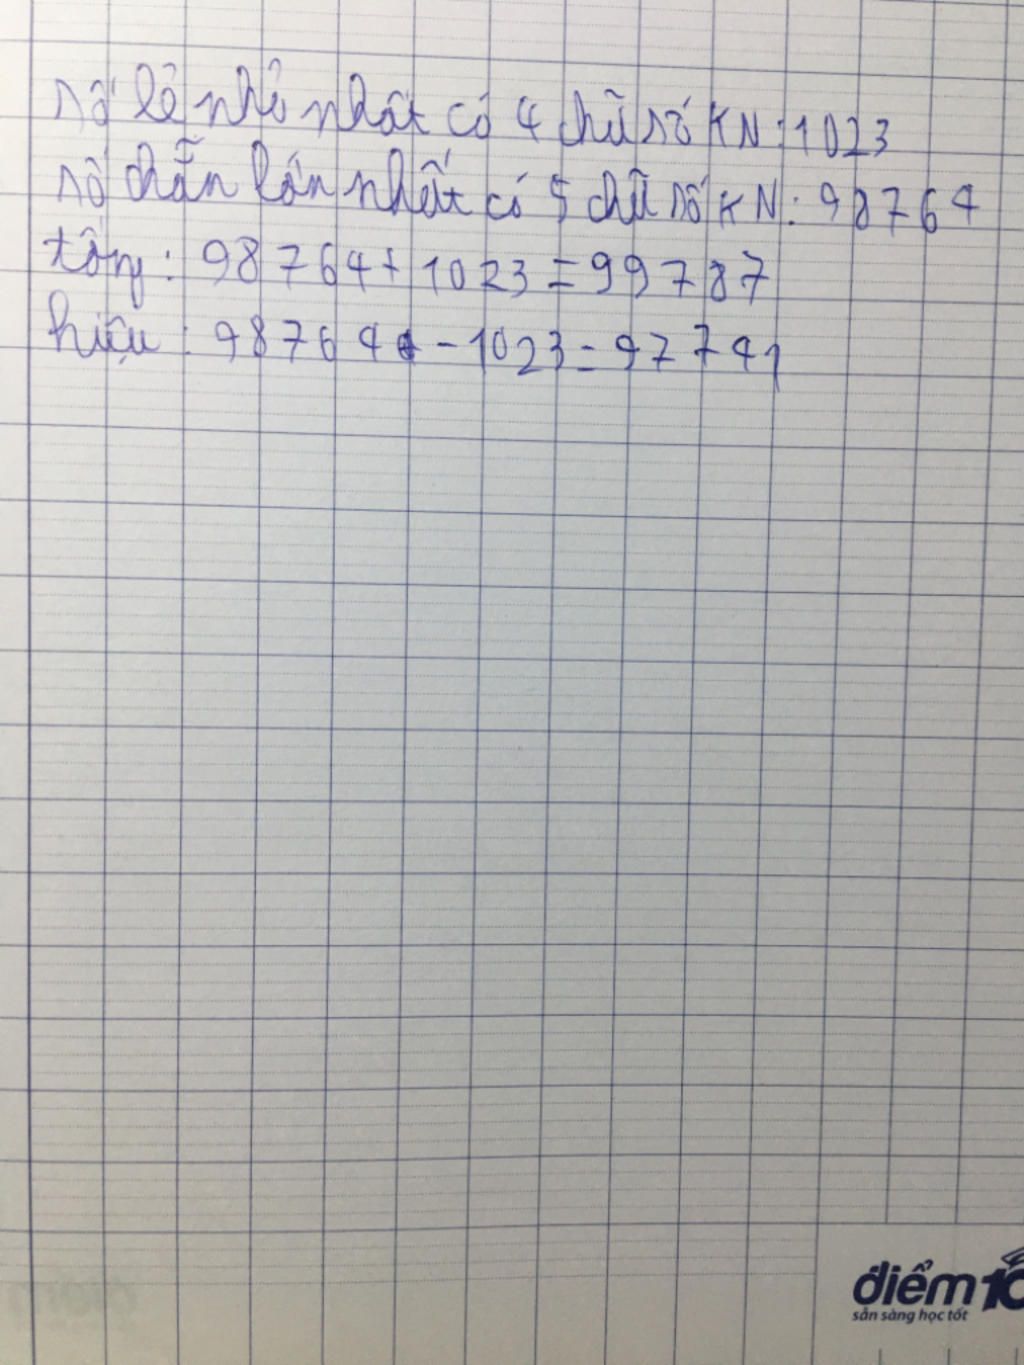 số lẻ nhỏ nhất có 4 chữ số KN: 1023
số chẵn lớn nhất có 5 chữ số KN: 98764
tổng: 98764 + 1023 = 99787
hiệu: 98764 - 1023 = 97741
điểm 10
sẵn sàng học tốt